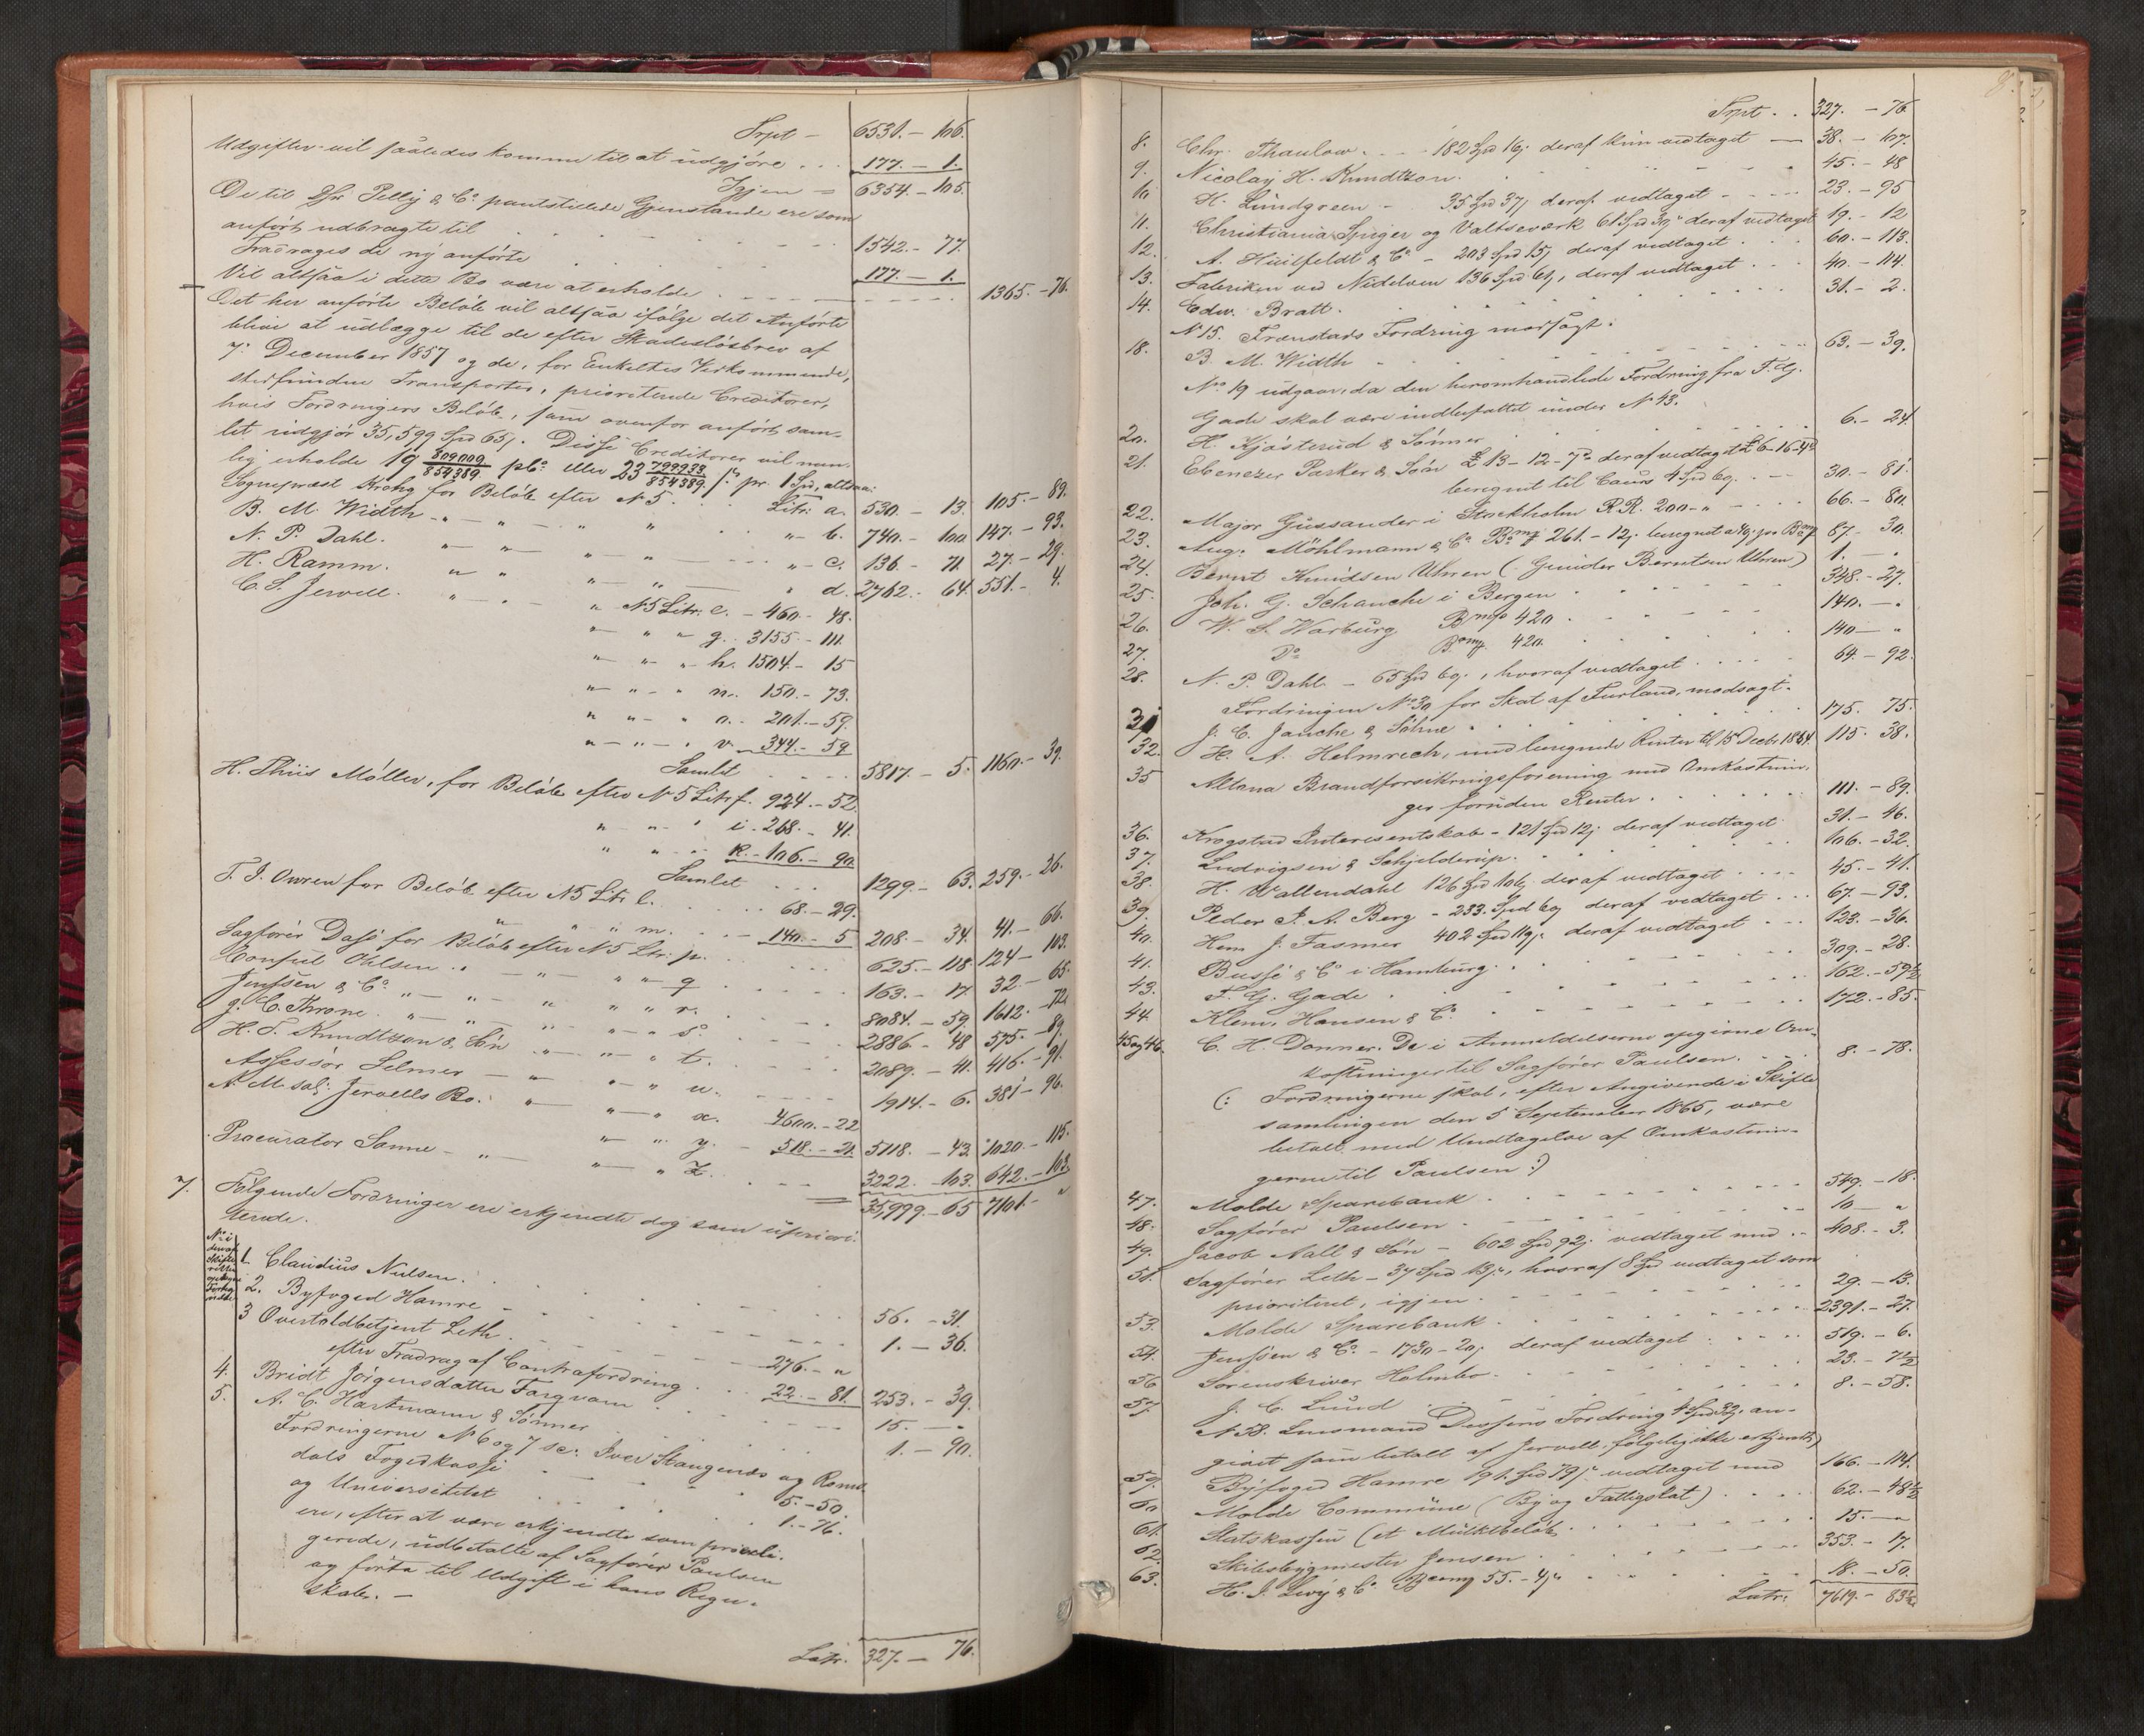 Trpt — 6531. — 106.
Udgifter vil saaledes komme til at udgjøre . . . 177. — 1.
Igjen = 6354. — 105.
De til Hr Pelly & Co pantstillede Gjenstande ere som
anført udbragte til 1542. — 77.
Fradrages de ny anførte 177. — 1.
Vil altsaa i dette Bo være at erholde 1365. — 76.
Det her anførte Beløb vil altsaa ifølge det Anførte
blive at udlægge til de efter Skadesløsbrev af
7. December 1857 og de, for Enkeltes Vedkommende,
stedfundne Transporter, prioriterede Creditorer,
hvis Fordringers Beløb, som ovenfor anført, sam-
let udgjør 35,599 Spd 65 s. Disse Creditorer vil nem-
lig erholde 19 809009/854389 pCt. eller 23 799933/854389 s. pr. 1 Spd, altsaa:
Sognepræst Krohg for Beløb efter N 5 . . . Litr. a. 530. — 13. 105. — 89.
B. M. Width — " — " — " " " — b. 740. — 100 147. — 93.
N. P. Dahl. " — " — " — " — c. 136. — 71. 27. — 29.
H. Ramm. " " " — " — " d. 2762. — 64. 551. — 4.
C. S. Jervell. " " — " N 5 Litr. e. — 460. — 48.
" — " " g. 3155. — 111.
" — " — " h. 1504. — 15
" — " — " n. 150. — 73.
" " — " o. 201. — 59.
" — " — " v. 344. — 59
Samlet 5817. — 5. 1160. — 39.
H. Thiis Møller, for Beløb efter N 5 Litr. f. 924. — 52.
" — " — " i. 268. — 41.
" " — " k. — 106. — 90.
Samlet . . . 1299. — 63. 259. — 26.
T. J. Owren for Beløb efter N 5 Litr. l. . . . 68. — 29.
" " " m. . . — 140. — 5 208. — 34. 41. — 66.
Sagfører Dass for Beløb efter N 5 Litr. p. 625. — 118 124 — 103.
Consul Ohlsen . " — " — " " — q 163. — 17. 32. — 65.
Jenssen & Co. " — " — " " " r. 8084. — 59. 1612. — 72.
J. C. Throne. " — " — " " — " s. 2886. — 48 575. — 89.
H. T. Knudtzon & Søn " — " — " t. 2089. — 41. 416. — 91.
Assessor Selmer — " — " — " u. 1914. — 6. 381 — 96.
N. M. sal. Jervells Bo. " — " — " x. 4600. — 22
" — " y. — 518. — 21. 5118. — 43. 1020. — 115.
Procurator Sanne — " — " — " z. 3222. — 103. 642. — 103.
35,999. — 65 7101. — "
7. Følgende Fordringer ere erkjendte dog som uprior-
terede.
N. i
den af
Skifte
retten
optagne
Forteg
nelse
1. Claudius Nielsen. 56. — 31.
2. Byfoged Hamre — 1. — 36.
3 Overtoldbetjent Leth . 276. — "
efter Fradrag af Contrafordring . . . 22. — 81. 253. — 39.
4. Bridt Jørgensdatter Fargvam 15. —
5. A. C. Hartmann & Sønner 1. — 90.
Fordringerne N 6 og 7 sc: Iver Stangenæs og Roms-
dals Fogedkasse 5. — 50.
og Universitetet 1. — 76.
ere, efter at være erkjendte som privile-
gerede, udbetalte af Sagfører Paulsen
og førte til Udgift i hans Regn-
skab. —
Latr. 327. — 76.
Trpt . . 327. — 76
8. Chr. Thaulow . . . 182 Spd 16 s. deraf kun vedtaget — 38. — 107.
9. Nicolay H. Knudtzon. 45. — 48
10. H. Lundgreen — 35 Spd 37 s. deraf vedtaget 23. — 95
11. Christiania Spiger og Valtseværk 61 Spd 30 s. deraf vedtaget 19. — 12
12. A. Huitfeldt & Co — 203 Spd 15 s. deraf vedtaget . 60. — 113.
13. Fabriken ved Nidelven 136 Spd 61 s., deraf vedtaget . . . 40. — 114.
14. Edw. Bratt. 31. — 2.
N 15. Frænstads Fordring modsagt.
18. B. M. Width 63. — 39.
No 19 udgaar, da den heromhandlede Fordring fra F. G.
Gade skal være indbefattet under N 43.
20. H. Kjøsterud & Sønner 6. — 24.
21. Ebenezer Parker & Søn £ 13 — 12 — 7 d. deraf vedtaget £ 6 — 16 — 4 d.
beregnet til Cours 4 Spd 60 s. . — 30. — 81.
22. Major Gussander i Stockholm R.R. 200 — " — 66. — 80.
23. Aug. Möhlmann & Co Bcomf 261. — 12 s. beregnet a 40 s. pr Bcomf 87. — 30.
24. Bernt Knudsen Uhren (: Gunder Berntsen Uhren) 1. — "
25. Joh. G. Schanche i Bergen 348. — 27.
26. W. S. Warburg Bcomf 420 . 140. — "
27. Do Bcomf. 420. 140 — "
28. N. P. Dahl — 65 Spd 60 s., hvoraf vedtaget 64. — 92.
Fordringen No 30 for Skat af Furland, modsagt.
31 J. C. Jauche & Söhne 175. 75.
32. H. A. Helmrech, med beregnede Renter til 15 Decbr 1864. 115. 38.
35 Altona Brandforsikringsforening med Omkostnin-
ger foruden Renter . 111. — 89.
36. Krogstad Interesentskab — 121 Spd 12 s. deraf vedtaget 31. — 46.
37. Ludvigsen & Schjelderup. 106. — 32.
38. H. Wallendahl 126 Spd 106 s. deraf vedtaget . . . . 45. — 41.
39. Peder P. A. Berg — 233 Spd 60 s. deraf vedtaget . . . 67. — 93.
40. Herm. J. Fasmer 402 Spd 119 s. deraf vedtaget . . . 123. — 36.
41. Busse & Co i Hamburg. 309. — 28.
43. F. G. Gade . 162. — 59½
44. Klem, Hansen & Co 172. — 85.
45 og 46. C. H. Donner. De i Anmeldelserne opgivne Om-
kostninger til Sagfører Paulsen. 8. — 78.
(: Fordringerne skal, efter Angivende i Skifte
samlingen den 5 September 1865, være
betalt med Undtagelse af Omkostnin-
gerne til Paulsen :)
47. Molde Sparebank 549. — 18.
48. Sagfører Paulsen 10 — "
49. Jacob Nall & Søn — 602 Spd 92 s. vedtaget med . . 408. — 3.
51. Sagfører Leth — 37 Spd 13 s., hvoraf 8 Spd vedtaget som
prioriteret, igjen 29. — 13.
53. Molde Sparebank 2391. — 27.
54. Jenssen & Co — 1730 — 20 s. deraf vedtaget 519. — 6.
56 Sorenskriver Holmboe 23. — 7½
57. J. C. Lund 8. — 58.
N 58. Lensmand Dessens Fordring 4 Spd 32 s. an-
givet som betalt af Jervell, følgelig ikke erkjendt
59. Byfoged Hamre 191 Spd 79 s. vedtaget med 166. — 114.
60 Molde Commune (By og Fattigskat) . 62. — 48½
61. Statskassen (et Mulktbeløb 15. — "
62. Skibsbygmester Jensen 353. — 17.
63. H. J. Levy & Co Bcomf 55. — 4 s. 18. — 50.
Latr. 7619. — 83½